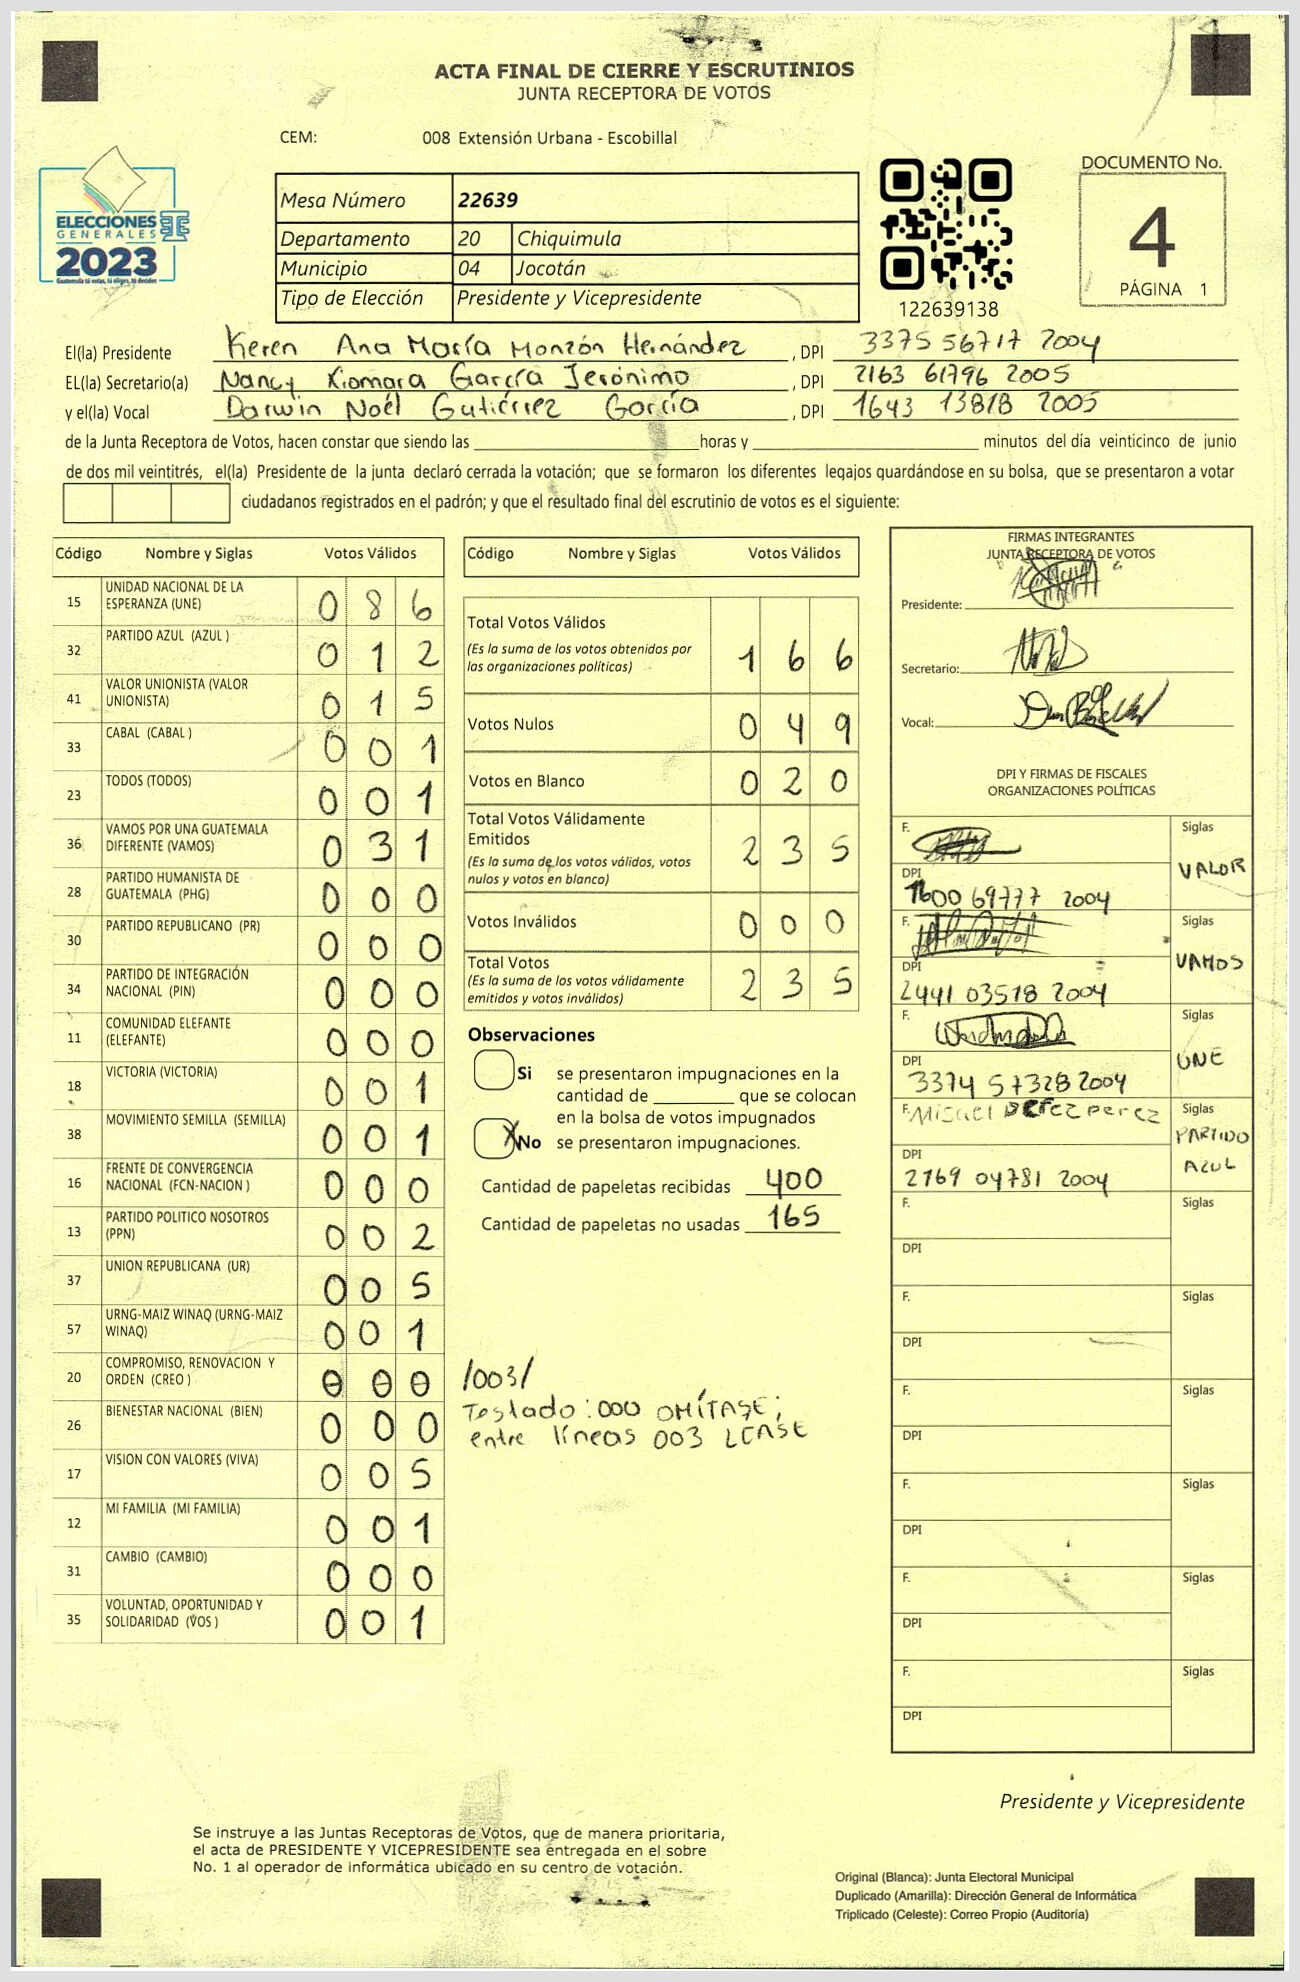 ACTA FINAL DE CIERRE Y ESCRUTINIOS
JUNTA RECEPTORA DE VOTOS
CEM: 008 Extensión Urbana - Escobillal
ELECCIONES
GENERALES
2023
Mesa Número 22639
Departamento 20 Chiquimula
Municipio 04 Jocotán
Tipo de Elección Presidente y Vicepresidente
122639138
DOCUMENTO No.
4
PÁGINA 1
El(la) Presidente Keren Ana María Monzón Hernández , DPI 3375 56717 2004
EL(la) Secretario(a) Nancy Xiomara García Jerónimo , DPI 2163 61796 2005
y el(la) Vocal Darwin Noél Gutiérrez García , DPI 1643 13818 2005
de la Junta Receptora de Votos, hacen constar que siendo las horas y minutos del día veinticinco de junio
de dos mil veintitrés, el(la) Presidente de la junta declaró cerrada la votación; que se formaron los diferentes legajos quardándose en su bolsa, que se presentaron a votar
ciudadanos registrados en el padrón; y que el resultado final del escrutinio de votos es el siguiente:
Código Nombre y Siglas Votos Válidos
15 UNIDAD NACIONAL DE LA
ESPERANZA (UNE) 0 8 6
32 PARTIDO AZUL (AZUL ) 0 1 2
41 VALOR UNIONISTA (VALOR
UNIONISTA) 0 1 5
33 CABAL (CABAL ) 0 0 1
23 TODOS (TODOS) 0 0 1
36 VAMOS POR UNA GUATEMALA
DIFERENTE (VAMOS) 0 3 1
28 PARTIDO HUMANISTA DE
GUATEMALA (PHG) 0 0 0
30 PARTIDO REPUBLICANO (PR) 0 0 0
34 PARTIDO DE INTEGRACIÓN
NACIONAL (PIN) 0 0 0
11 COMUNIDAD ELEFANTE
(ELEFANTE) 0 0 0
18 VICTORIA (VICTORIA) 0 0 1
38 MOVIMIENTO SEMILLA (SEMILLA) 0 0 1
16 FRENTE DE CONVERGENCIA
NACIONAL (FCN-NACION ) 0 0 0
13 PARTIDO POLITICO NOSOTROS
(PPN) 0 0 2
37 UNION REPUBLICANA (UR) 0 0 5
57 URNG-MAIZ WINAQ (URNG-MAIZ
WINAQ) 0 0 1
20 COMPROMISO, RENOVACION Y
ORDEN (CREO ) 0 0 0
26 BIENESTAR NACIONAL (BIEN) 0 0 0
17 VISION CON VALORES (VIVA) 0 0 5
12 MI FAMILIA (MI FAMILIA) 0 0 1
31 CAMBIO (CAMBIO) 0 0 0
35 VOLUNTAD, OPORTUNIDAD Y
SOLIDARIDAD (VOS ) 0 0 1
Código Nombre y Siglas Votos Válidos
Total Votos Válidos
(Es la suma de los votos obtenidos por
las organizaciones políticas) 1 6 6
Votos Nulos 0 4 9
Votos en Blanco 0 2 0
Total Votos Válidamente
Emitidos
(Es la suma de los votos válidos, votos
nulos y votos en blanco) 2 3 5
Votos Inválidos 0 0 0
Total Votos
(Es la suma de los votos válidamente
emitidos y votos inválidos) 2 3 5
Observaciones
Si se presentaron impugnaciones en la
cantidad de que se colocan
en la bolsa de votos impugnados
X No se presentaron impugnaciones.
Cantidad de papeletas recibidas 400
Cantidad de papeletas no usadas 165
/003/
Testado: 000 OMÍTASE;
entre líneas 003 LEASE
FIRMAS INTEGRANTES
JUNTA RECEPTORA DE VOTOS
Presidente:
Secretario:
Vocal:
DPI Y FIRMAS DE FISCALES
ORGANIZACIONES POLÍTICAS
F. Siglas
VALOR
DPI
1600 69777 2004
F. Siglas
VAMOS
DPI
2441 03518 2004
F. Siglas
UNE
DPI
3374 57328 2004
F. Siglas
PARTIDO
AZUL
DPI
2769 04781 2004
F. Siglas
DPI
F. Siglas
DPI
F. Siglas
DPI
F. Siglas
DPI
F. Siglas
DPI
F. Siglas
DPI
Presidente y Vicepresidente
Se instruye a las Juntas Receptoras de Votos, que de manera prioritaria,
el acta de PRESIDENTE Y VICEPRESIDENTE sea entregada en el sobre
No. 1 al operador de informática ubicado en su centro de votación.
Original (Blanca): Junta Electoral Municipal
Duplicado (Amarilla): Dirección General de Informática
Triplicado (Celeste): Correo Propio (Auditoría)